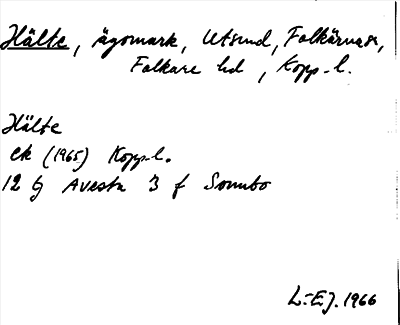 Hälte, ägomark, Utsund, Folkärna sn,
Folkare hd, Kopp. l.
Hälte
ek (1965) Kopp. l.
12 G Avesta 3 f Sonnbo
L.-E.J. 1966